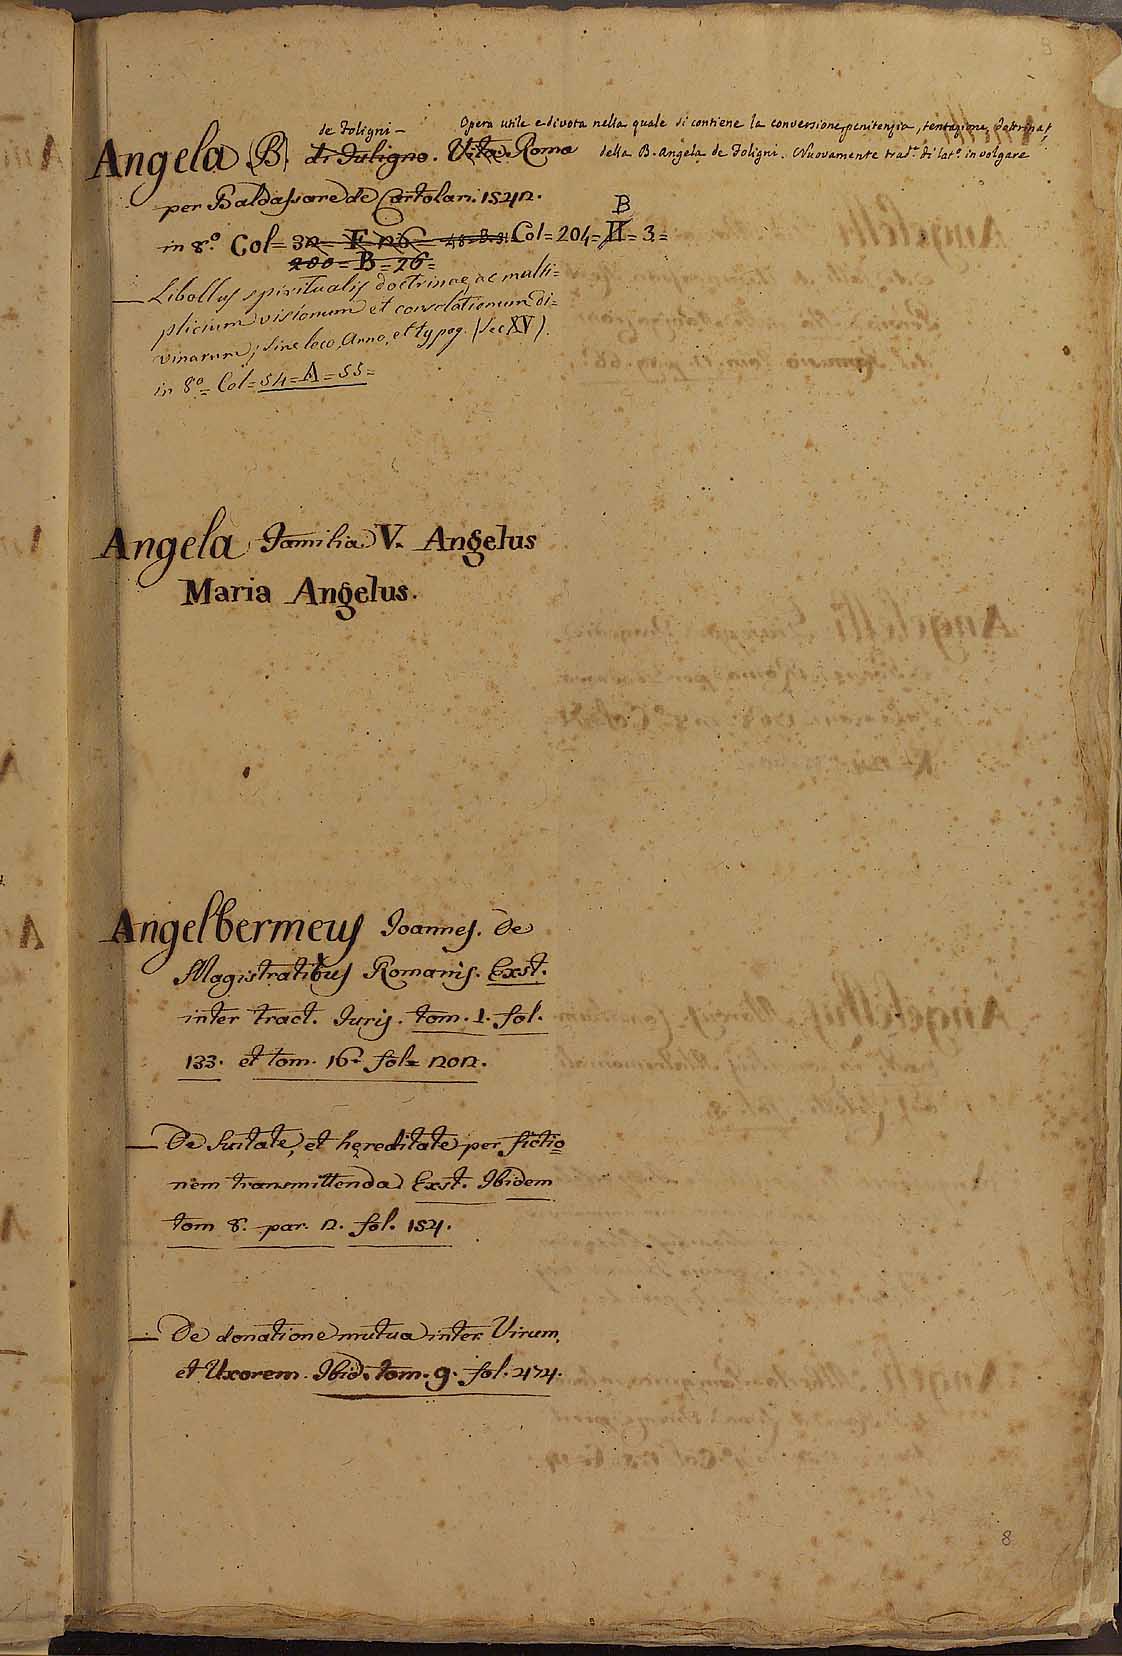 de Foligni - Opera utile e divota nella quale si contiene la conversione, penitenzia, tentazione, dotrina,
Angela (B) di Fuligno. Vita. Roma della B. Angela de Foligni. Nuovamente trad.ª di lat.º in volgare
per Baldassare de Cartolari. 1542.
B
in 8.º Col= 32= F= 26= 48=B=31 Col= 204= H= 3.=
200= B= 26=
— Libellus spiritualis doctrinae, ac multi=
plicium visionum et consolationum di=
vinarum; sine loco, Anno, et typog. (Sec XV).
in 8º= Col= 54= A= 55=
Angela Familia V. Angelus
Maria Angelus.
Angelbermeus Joannes. De
Magistratibus Romanis. Exst.
inter tract. Juris. tom. 1. fol.
133. et tom. 16. fol. 202.
— De Suitate, et hereditate per fictio=
nem transmittenda. Exst. Ibidem
tom 8. par. 2. fol. 154.
— De donatione mutua inter Virum,
et Uxorem. Ibid. tom. 9. fol. 474.
8